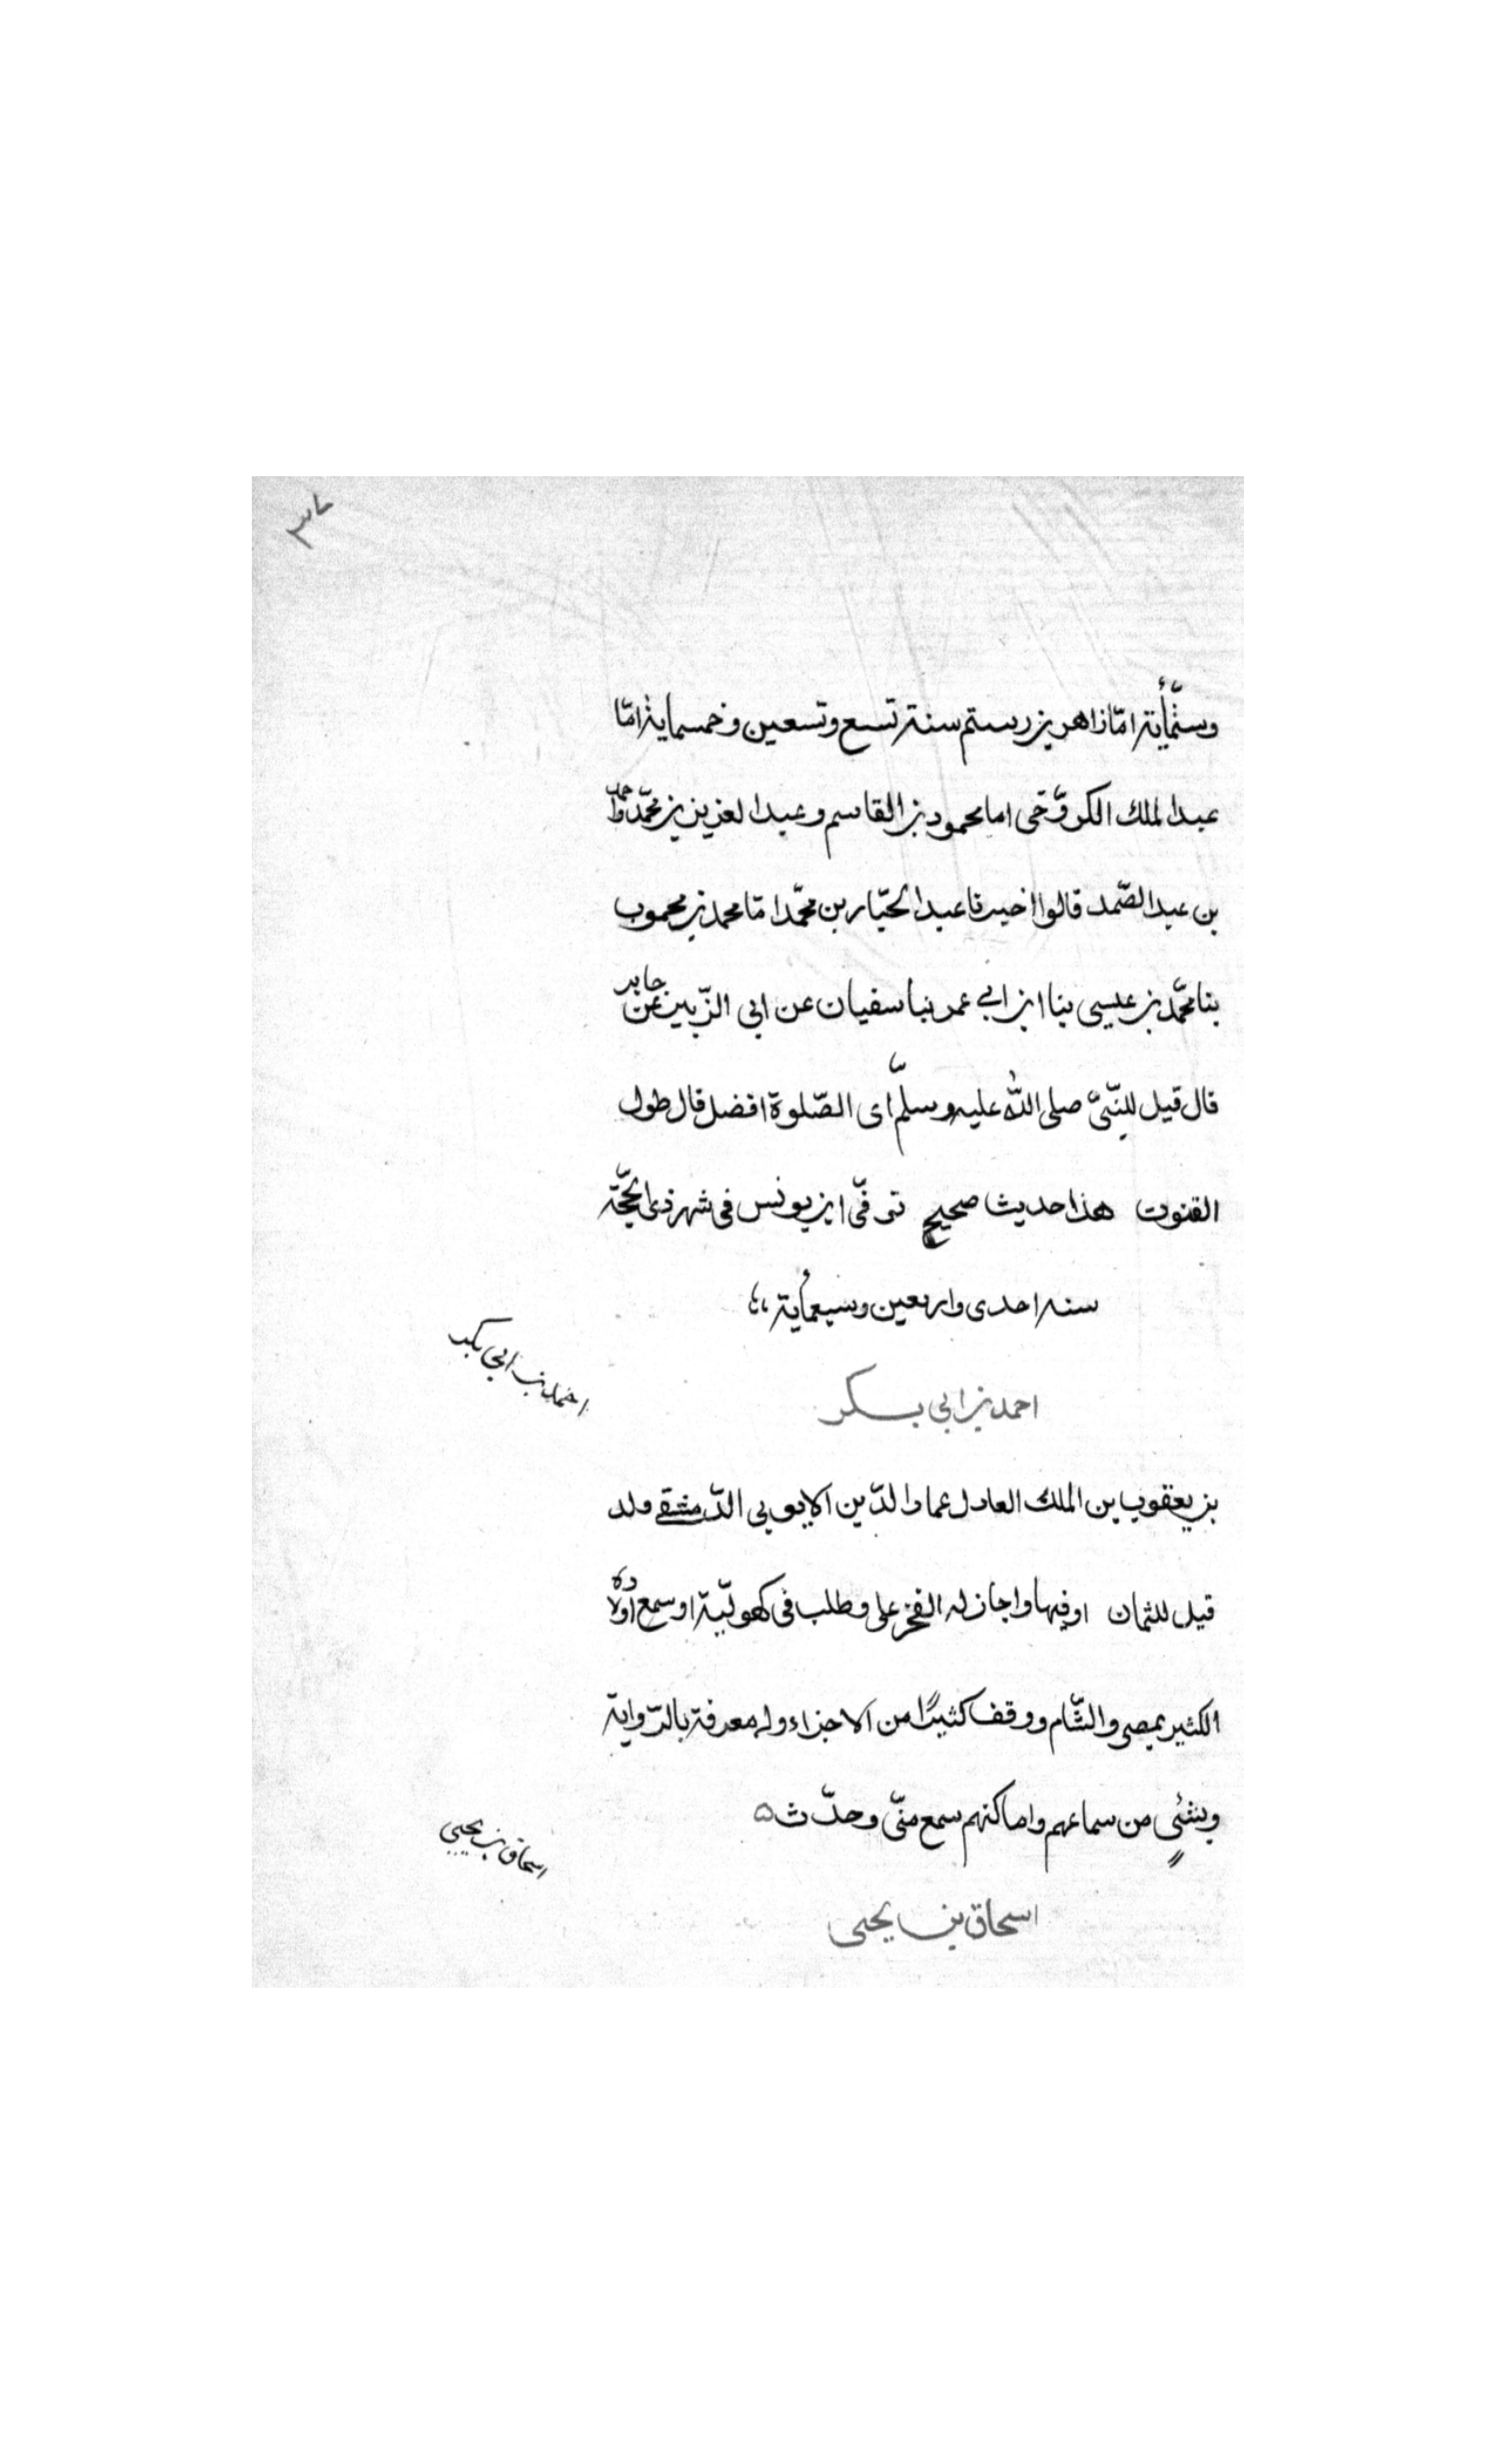 ٣٧
وستّمأية امّا زاهر بن رستم سنة تسع وتسعين وخمسماية امّا
عبد الملك الكروّخى اما محمود بن القاسم وعبد العزيز بن محمّد واحمد
بن عبد الصّمد قالوا اخبرنا عبد الجبّار بن محمّد امّا محمد بن محبوب
بنا محمّد بن عيسى بنا ابن ابى عمر بنا سفيان عن ابى الزّبير عن جابر
قال قيل للنّبىّ صلى الله عليه وسلّم اى الصّلوة افضل قال طول
القنوت هذا حديث صحيح توفّى ابن يونس فى شهر ذى الحجّة
سنه احدى واربعين وسبعمأية
احمد بن ابى بكر
احمد بن ابى بكر
بن يعقوب بن الملك العادل عماد الدّين الايوبى الدّمشقى ولد
قبل للثمان او فيها واجاز له الفخر على وطلب فى كهوليّة او سمع اولاده
الكثير بمصر والشّام ووقف كثيرًا من الاجزاء وله معرفة بالرّواية
وبشئٍ من سماعهم واماكنهم سمع منّى وحدّث ه
اسحاق بن يحيى
اسحاق بن يحيى